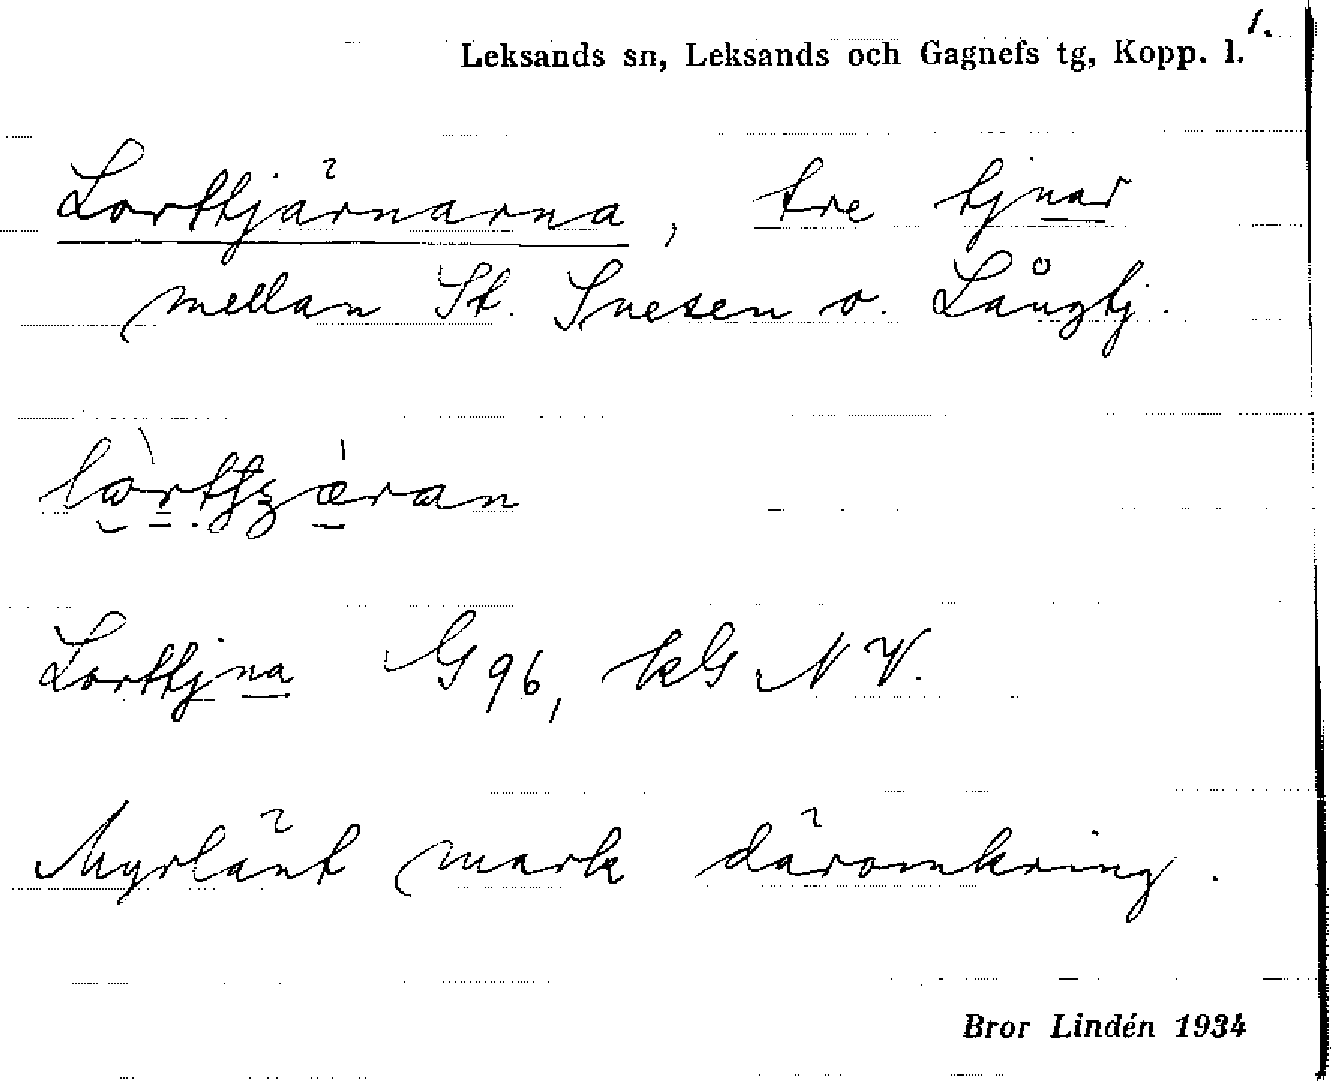 1.
Leksands sn, Leksands och Gagnefs tg, Kopp. l.
Lorttjärnarna, tre tjnar
mellan St. Snesen o. Långtj.
Lorttjna G 96, kG NV.
Myrlänt mark däromkring.
Bror Lindén 1934